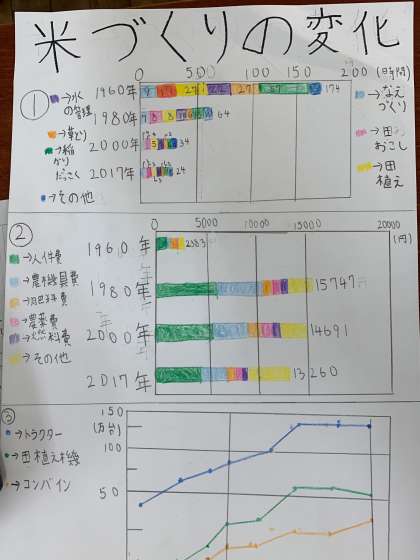 米づくりの変化
0 50 100 150 200 (時間)
①
→水の管理
→草とり
→稲かりだっこく
→その他
1960年
174
1980年
64
2000年
34
2017年
24
→なえづくり
→田おこし
→田植え
②
0 5000 10000 15000 20000 (円)
→人件費
→農機具費
→肥料費
→農薬費
→燃料費
→その他
1960年
1980年
15747
2000年
14691
2017年
13260
③
→トラクター
→田植え機
→コンバイン
150
(万台)
100
50